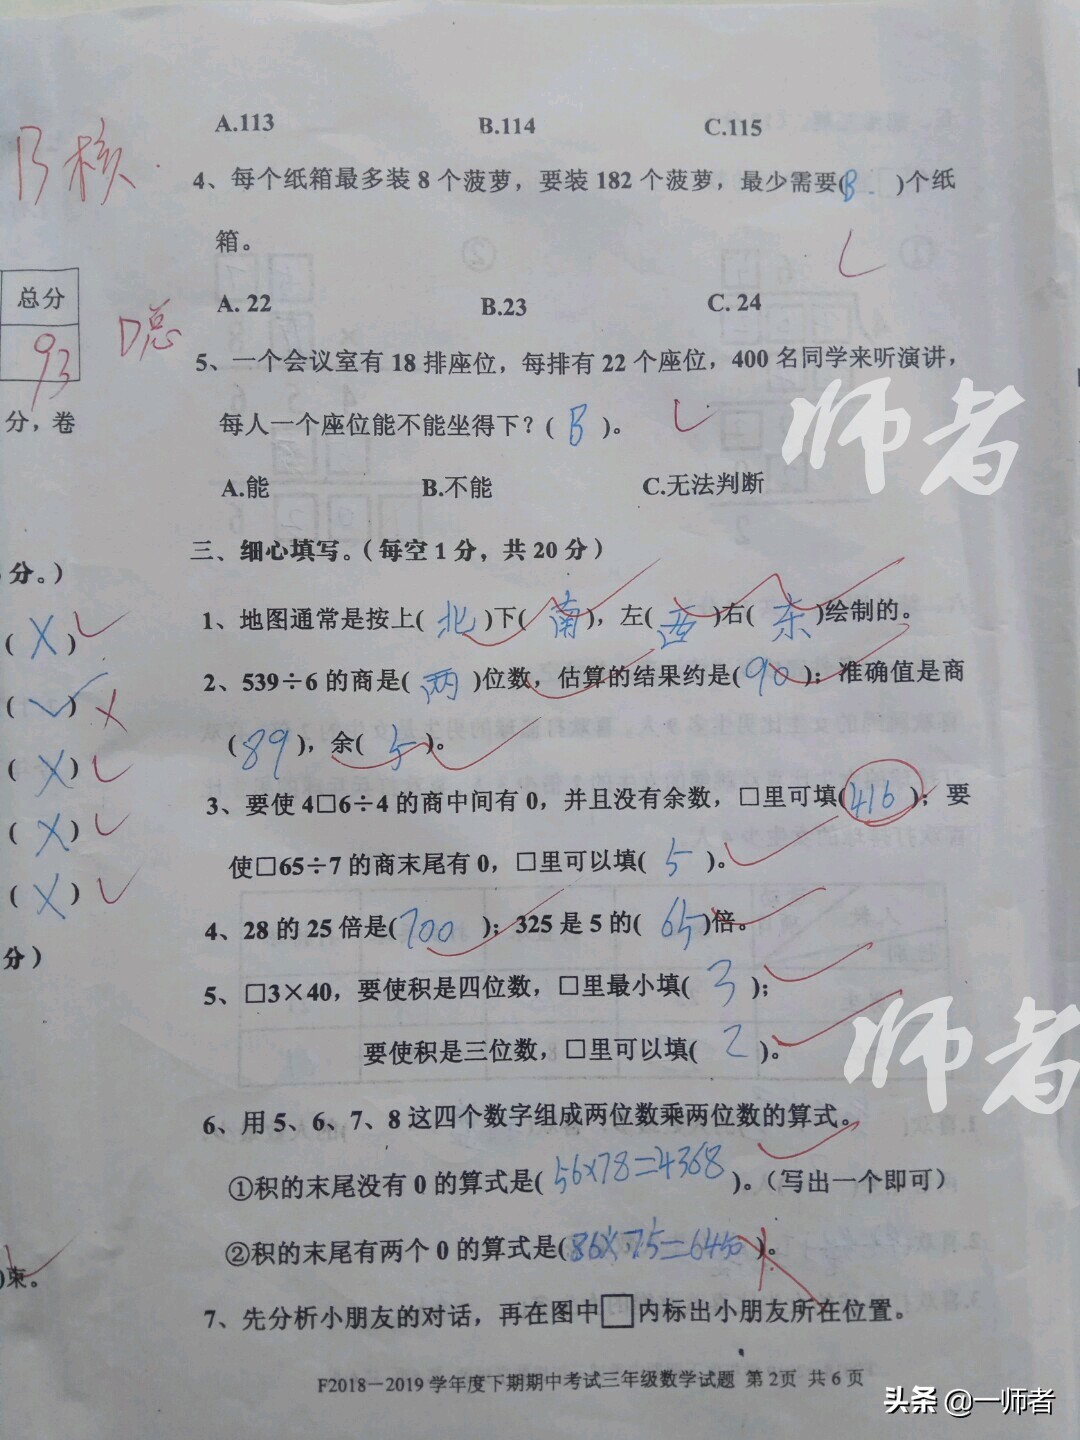 A.113 B.114 C.115
B核
4、每个纸箱最多装 8 个菠萝，要装 182 个菠萝，最少需要(B )个纸
箱。
A. 22 B.23 C. 24
总分
93
D总
分，卷
5、一个会议室有 18 排座位，每排有 22 个座位，400 名同学来听演讲，
每人一个座位能不能坐得下？( B )。
A.能 B.不能 C.无法判断
师者
三、细心填写。（每空 1 分，共 20 分）
分。）
( X )
( ✓ )
( X )
( X )
( X )
分）
1、地图通常是按上( 北 )下( 南 )，左( 西 )右( 东 )绘制的。
2、539÷6 的商是( 两 )位数，估算的结果约是( 90 )；准确值是商
( 89 )，余( 5 )。
3、要使 4□6÷4 的商中间有 0，并且没有余数，□里可填(416 )；要
使□65÷7 的商末尾有 0，□里可以填( 5 )。
4、28 的 25 倍是(700 )；325 是 5 的( 65 )倍。
5、□3×40，要使积是四位数，□里最小填( 3 )；
要使积是三位数，□里可以填( 2 )。
师者
6、用 5、6、7、8 这四个数字组成两位数乘两位数的算式。
①积的末尾没有 0 的算式是( 56×78=4368 )。（写出一个即可）
②积的末尾有两个 0 的算式是(86×75=6450 )。
)束。
7、先分析小朋友的对话，再在图中□内标出小朋友所在位置。
F2018－2019 学年度下期期中考试三年级数学试题 第 2页 共 6 页
头条 @一师者